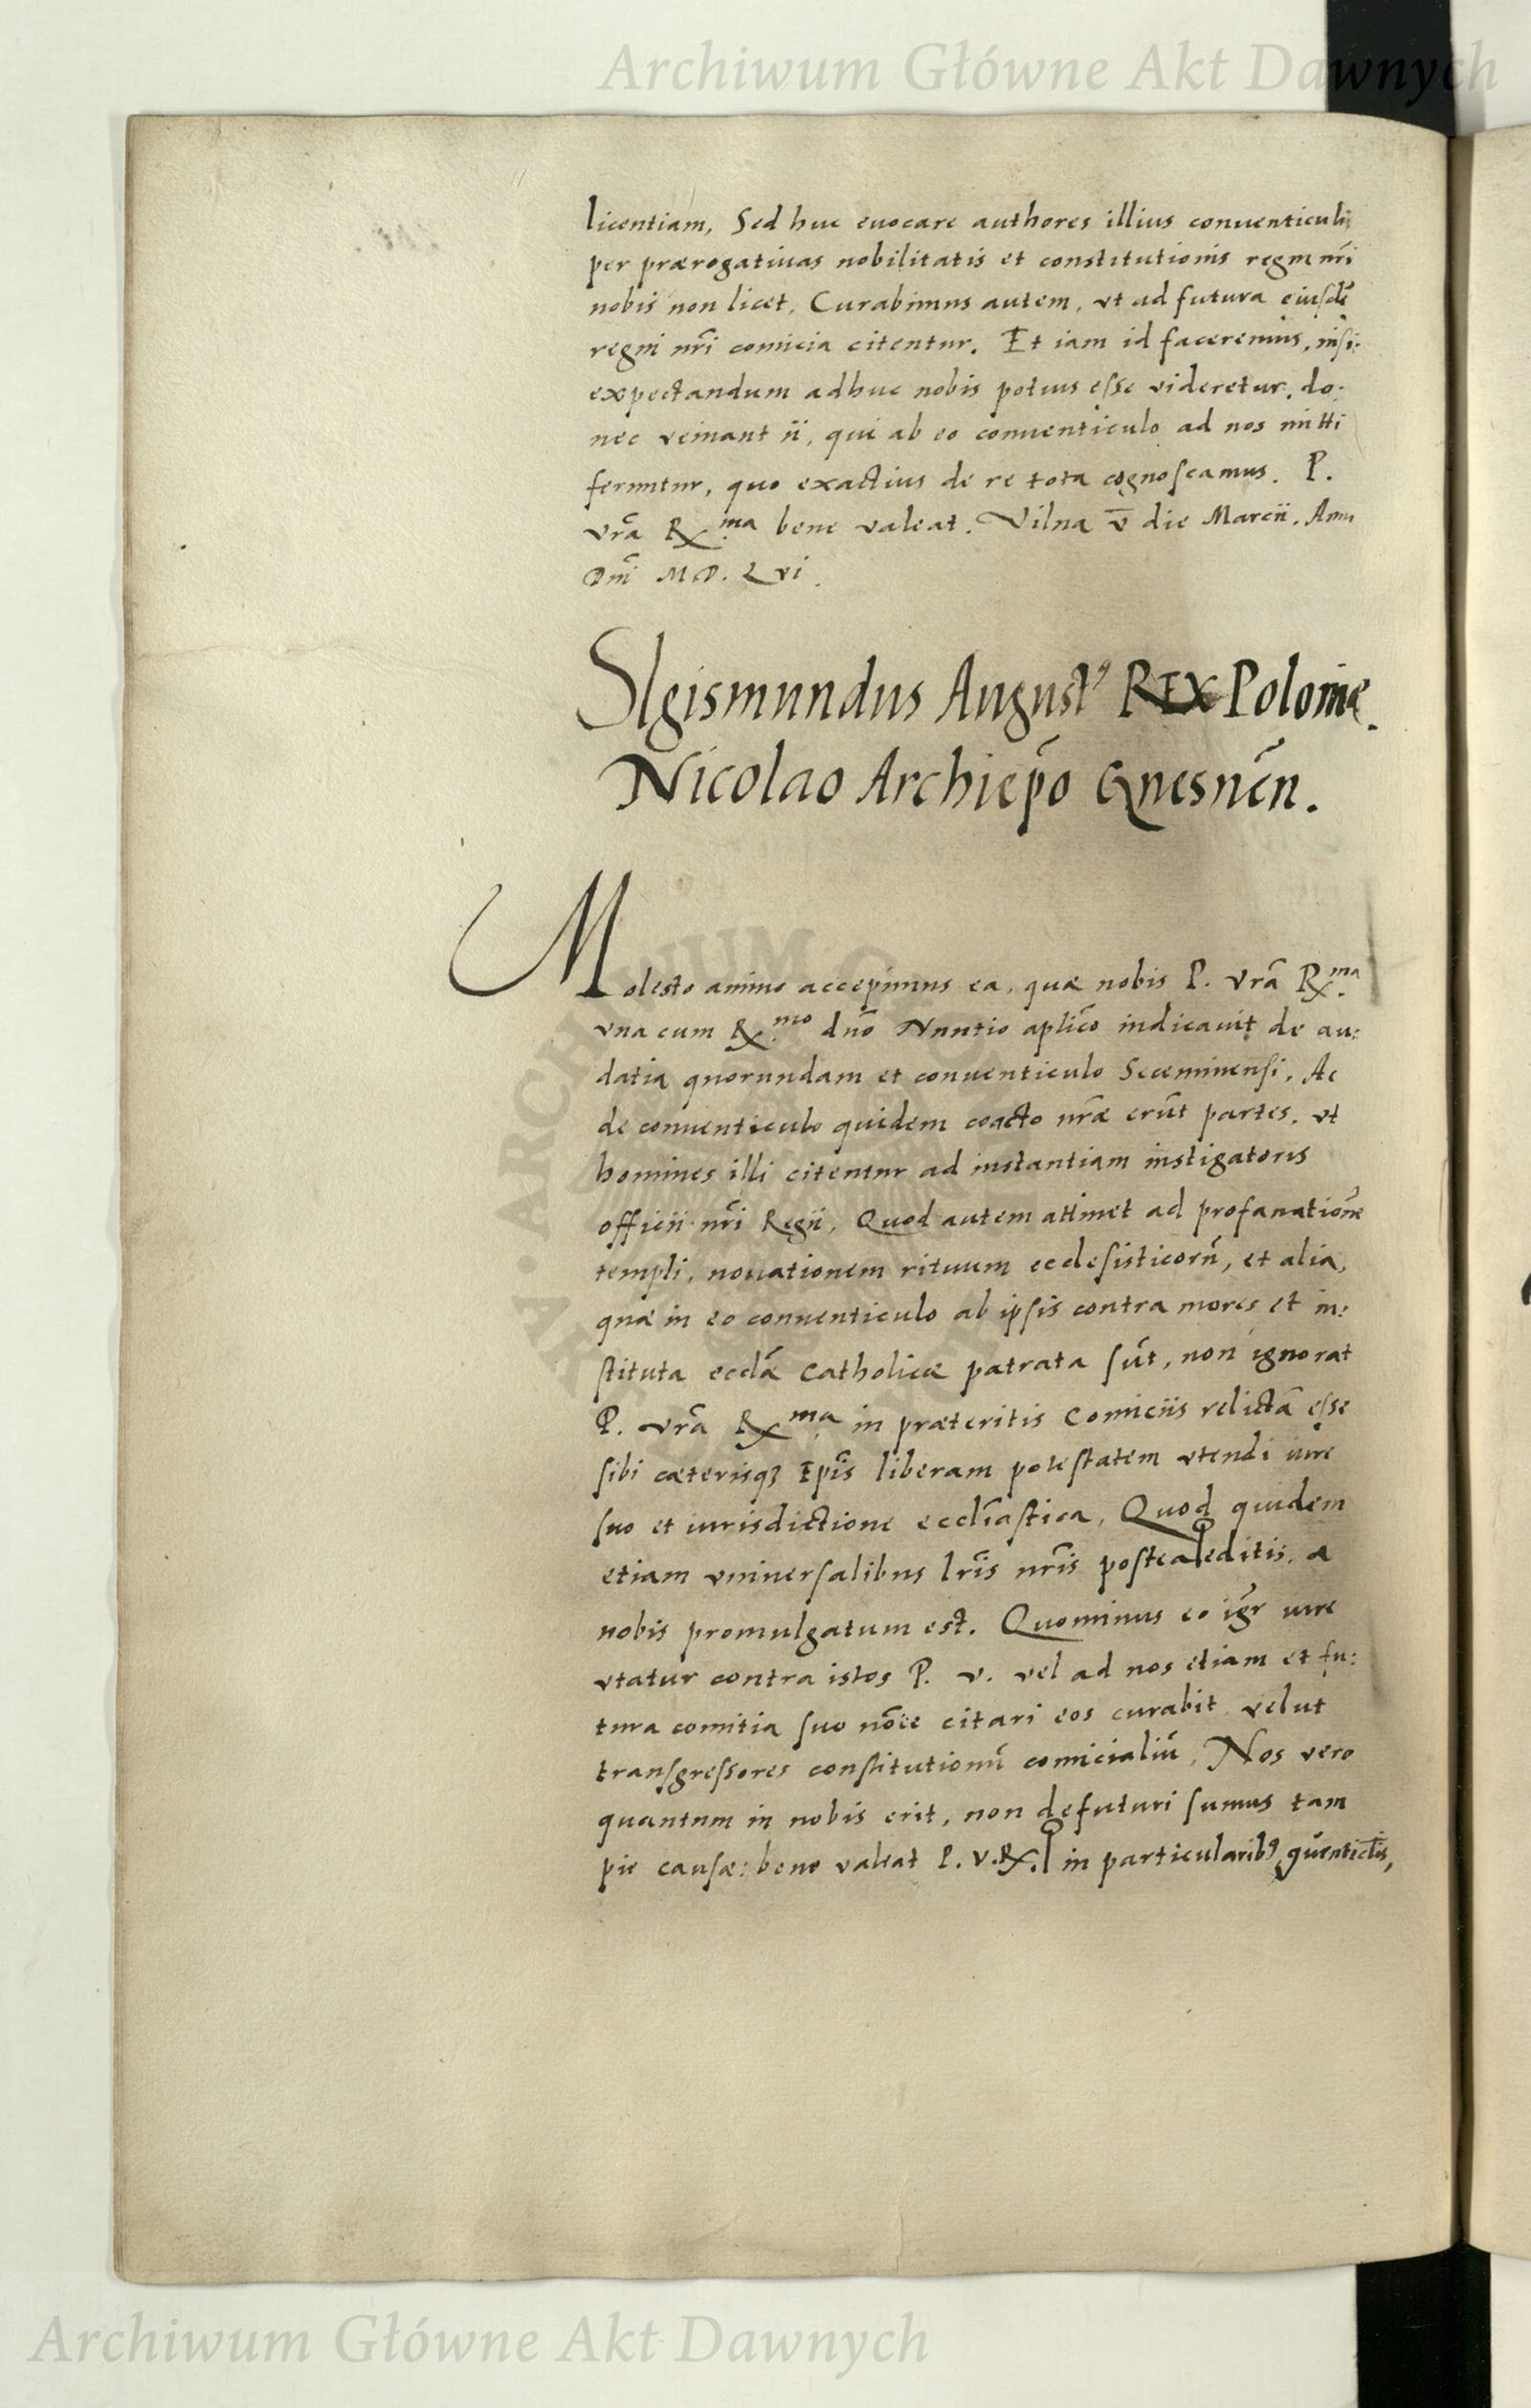 Archiwum Główne Akt Dawnych
licentiam, Sed huc euocare authores illius conuenticuli,
per prærogatiuas nobilitatis et constitutionis regni nr̃i
nobis non licet, Curabimus autem, vt ad futura eiusdẽ
regni nr̃i comicia citentur. Et iam id faceremus, nisi:
expectandum adhuc nobis potius esse videretur, do:
nec veniant ii, qui ab eo conuenticulo ad nos mitti
feruntur, quo exactius de re tota cognoscamus. P.
vr̃a Rx^ma bene valeat. Vilna v̄ die Marcii. Anno
Dnĩ M.D. Lvi.
SIgismundus August9 REX Poloniæ.
Nicolao Archiep̃o Gnesnẽn.
Molesto animo accepimus ea, quæ nobis P. Vr̃a Rx^ma
vna cum Rx^mo dnõ Nuntio aplicõ indicauit de au:
datia quorundam et conuenticulo Seceminensi. Ac
de conuenticulo quidem coacto nr̃æ erũt partes, vt
homines illi citentur ad instantiam instigatoris
officii nr̃i Regii, Quod autem attinet ad profanationẽ
templi, nouationem rituum ecclesisticorũ, et alia,
quæ in eo conuenticulo ab ipsis contra mores et in:
stituta ecclã Catholicæ patrata sũt, non ignorat
P. vr̃a Rx^ma in præteritis Comiciis relictã esse
sibi cæterisqꝫ Epĩs liberam potestatem vtendi iure
suo et iurisdictione ecclĩastica, Quod quidem
etiam vniuersalibus lr̃is nr̃is postea editis, a
nobis promulgatum est. Quominus eo ig̃r iure
vtatur contra istos P. v. vel ad nos etiam et fu:
tura comitia suo nõie citari eos curabit velut
transgressores constitutionũ comicialiũ, Nos vero
quantum in nobis erit, non defuturi sumus tam
piæ causæ: bene valeat P. V. Rx. in particularib9 9uẽntictis,
Archiwum Główne Akt Dawnych